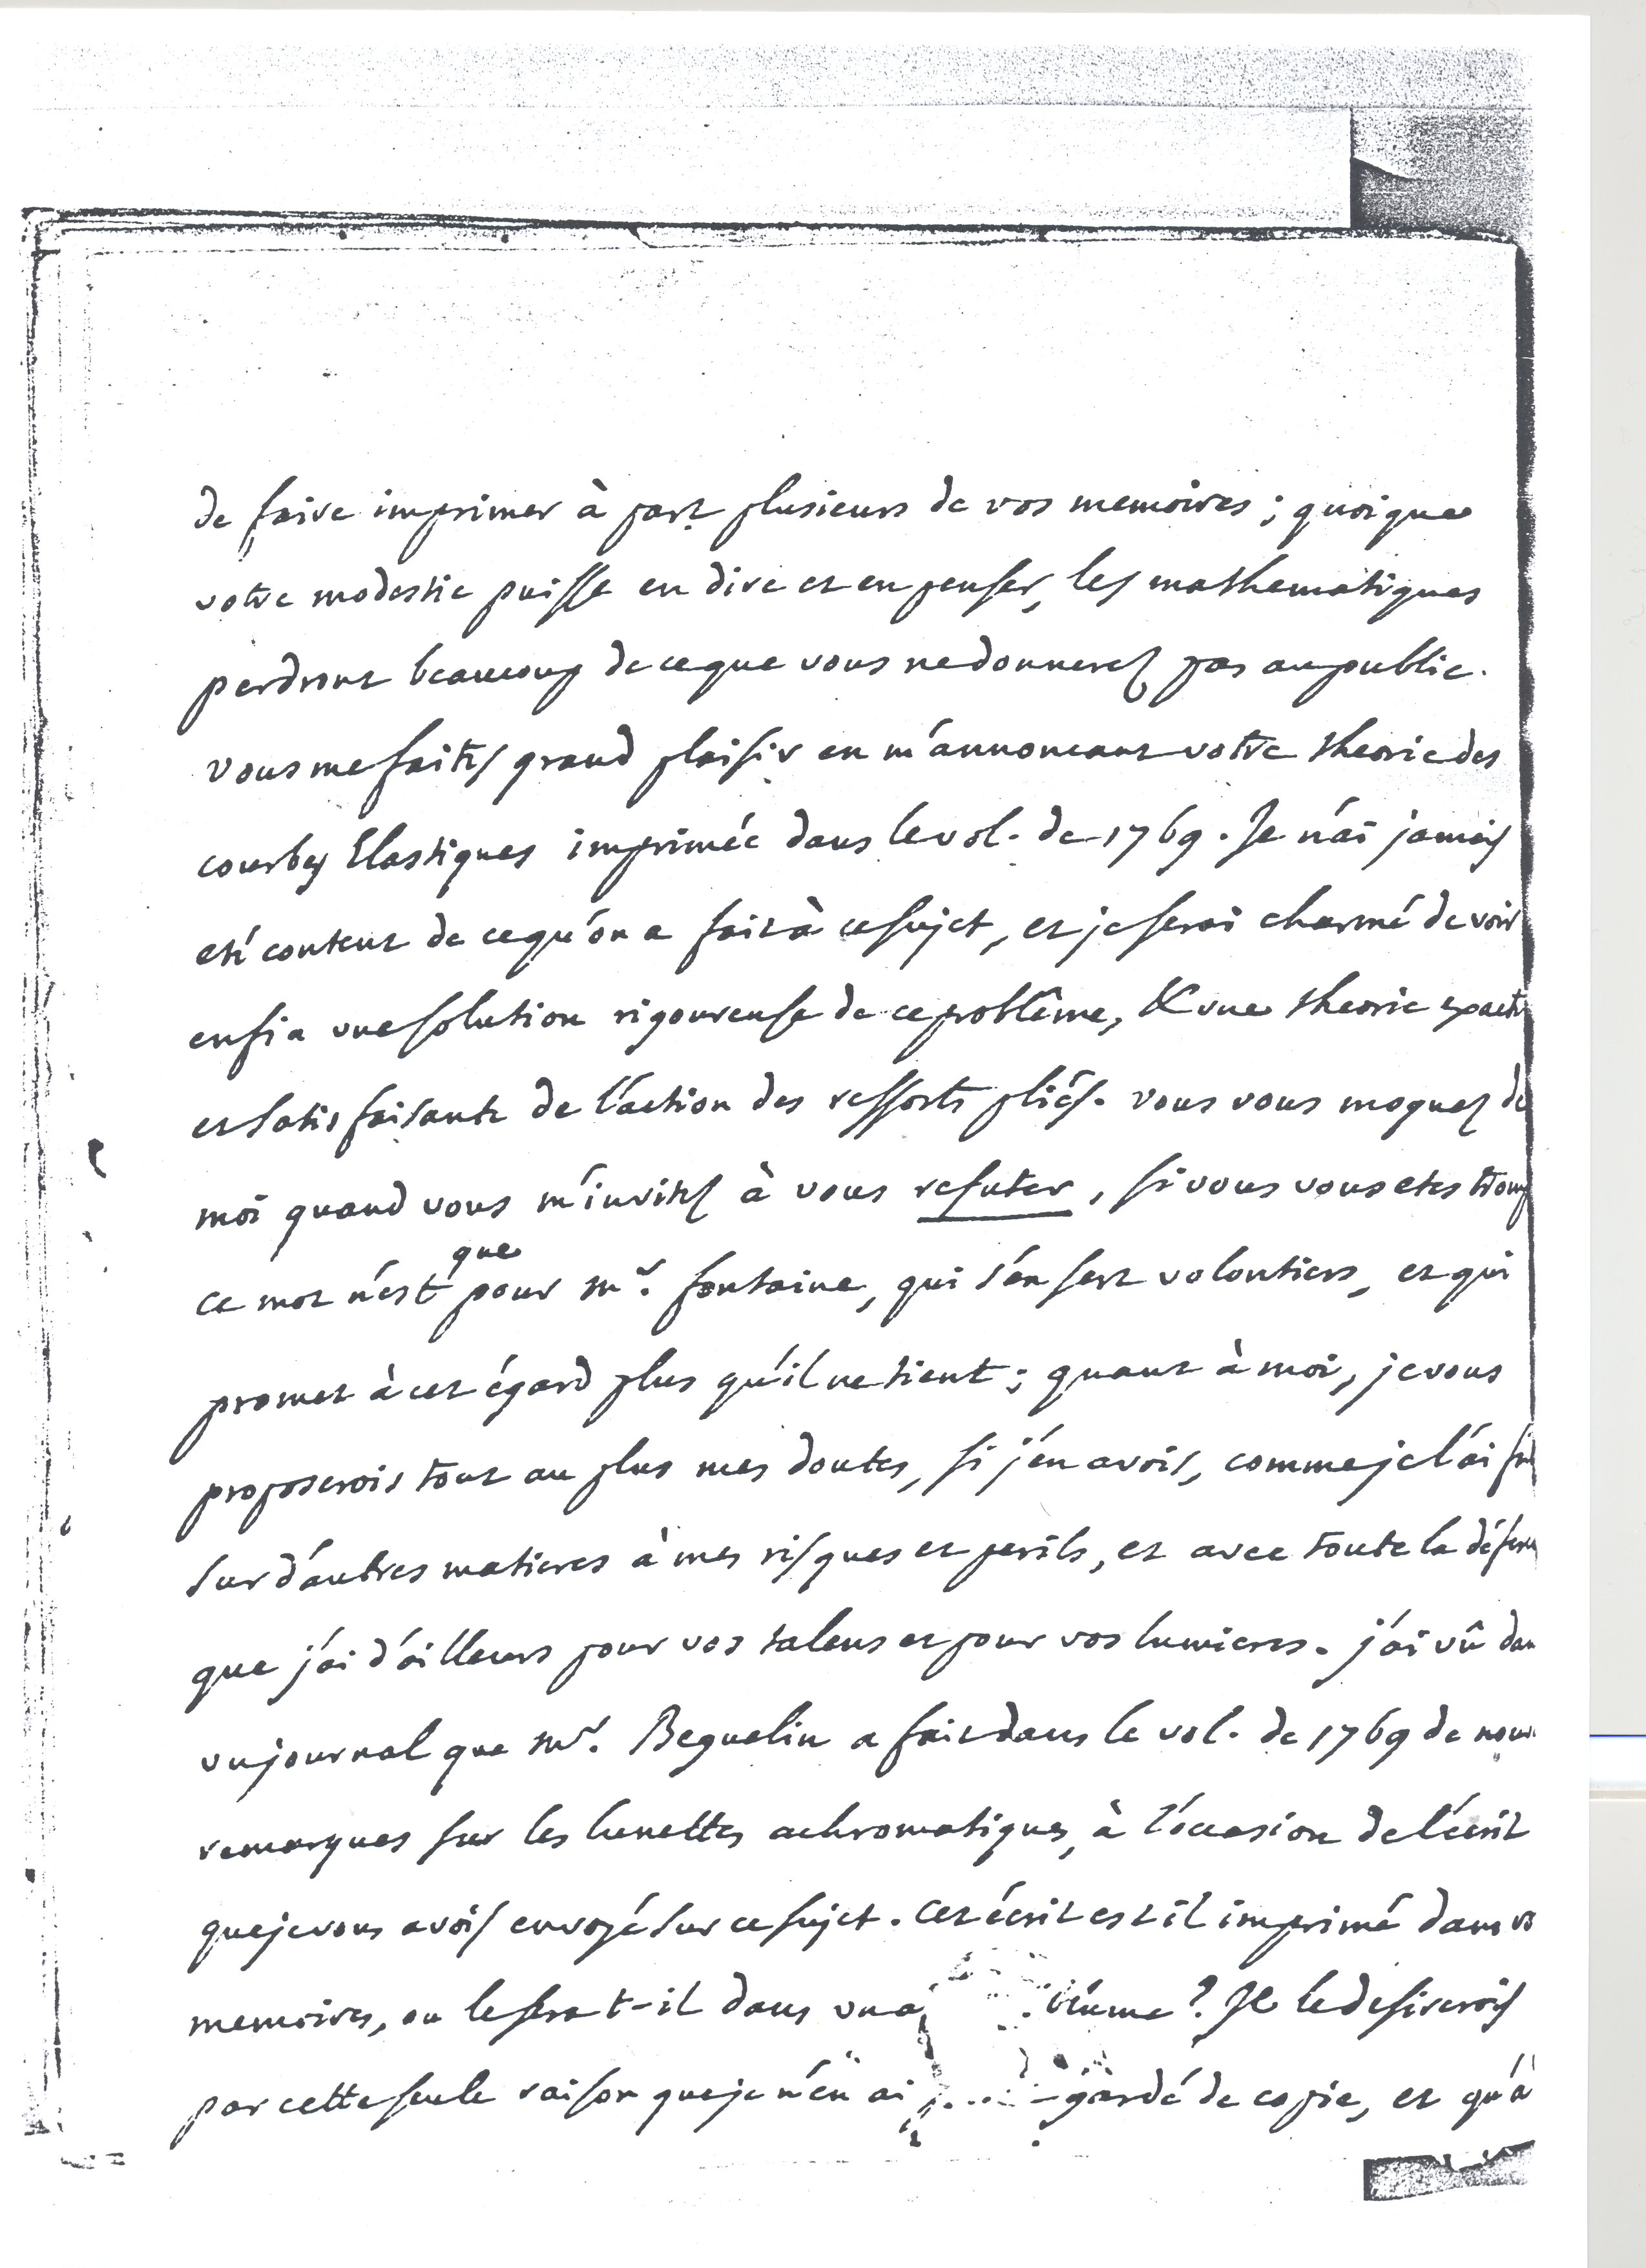 de faire imprimer à part plusieurs de vos memoires ; quoique
votre modestie puisse en dire et en penser, les mathematiques
perdront beaucoup de ce que vous ne donnerez pas au public.
vous me faites grand plaisir en m'annonçant votre theorie des
courbes Elastiques imprimée dans le vol. de 1769. Je n'ai jamais
eté content de ce qu'on a fait à ce sujet, et je serai charmé de voir
enfin une solution rigoureuse de ce problême, & une theorie exacte
et satisfaisante de l'action des ressorts pliés. vous vous moquez de
moi quand vous m'invitez à vous refuter, si vous vous etes tromp
ce mot n'est que pour Mr. fontaine, qui s'en sert volontiers, et qui
promet à cet égard plus qu'il ne tient ; quant à moi, je vous
proposerois tout au plus mes doutes, si j'en avois, comme je l'ai fait
sur d'autres matieres à mes risques et perils, et avec toute la déferen
que j'ai d'ailleurs pour vos talens et pour vos lumieres. j'ai vû dan
un journal que Mr. Beguelin a fait dans le vol. de 1769 de nouv
remarques sur les lunettes achromatiques, à l'occasion de l'écrit
que je vous avois envoyé sur ce sujet. Cet écrit est il imprimé dans vo
memoires, ou le sera t-il dans un a lume ? Je le desirerois
par cette seule raison que je n'en ai gardé de copie, et qu'à